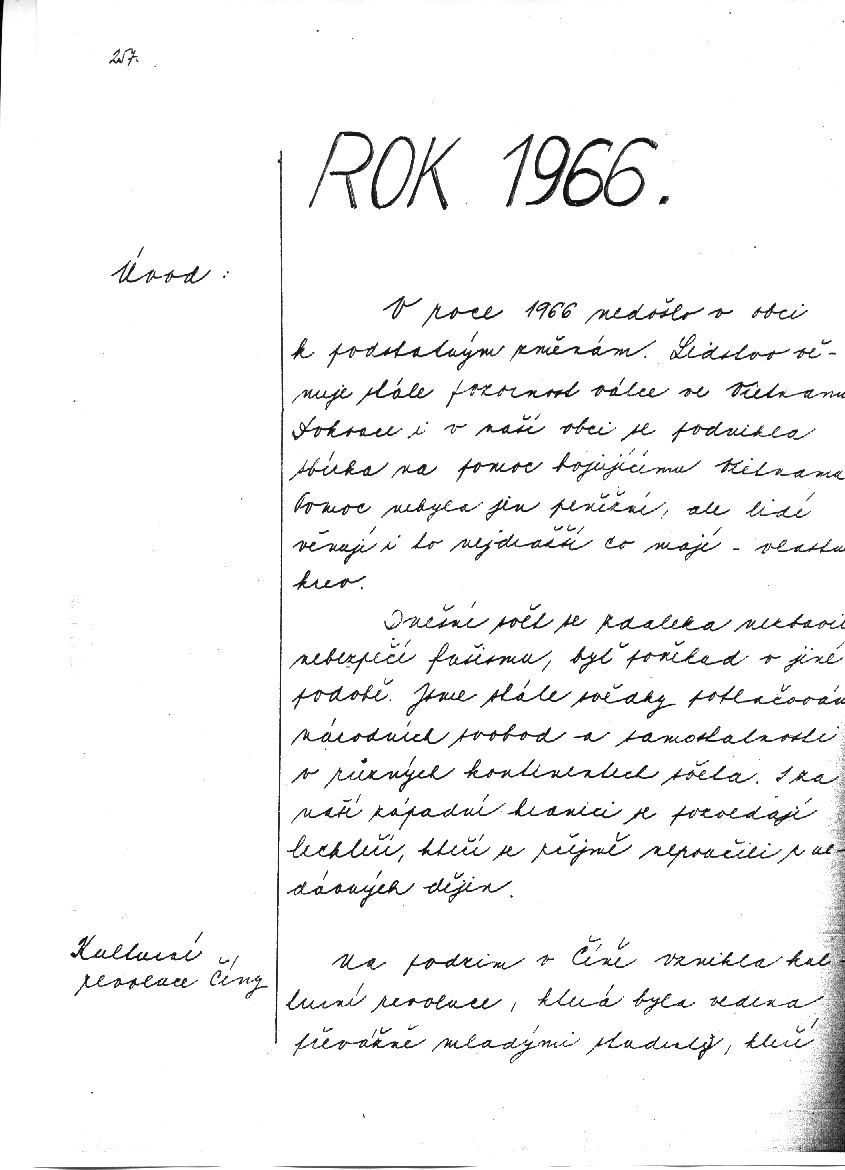 257.
ROK 1966.
Úvod :
V roce 1966 nedošlo v obci
k podstatným změnám. Lidstvo vě-
nuje stále pozornost válce ve Vietnamu
Dokonce i v naší obci se podnikla
sbírka na pomoc bojujícímu Vietnamu
Pomoc nebyla jen peněžní, ale lidé
věnují i to nejdražší co mají - vlastn
krev.
Dnešní svět se zdaleka nezbavil
nebezpečí fašismu, byť poněkud v jiné
podobě. Jsme stále svědky potlačován
národních svobod a samostatnosti
v různých kontinentech světa. I za
naší západní hranicí se pozvedají
lechteří, kteří se zřejmě nepoučili z ne-
dávných dějin.
Kulturní
revoluce Číny
Na podzim v Číně vznikla kul-
turní revoluce, která byla vedena
převážně mladými studenty, kteří